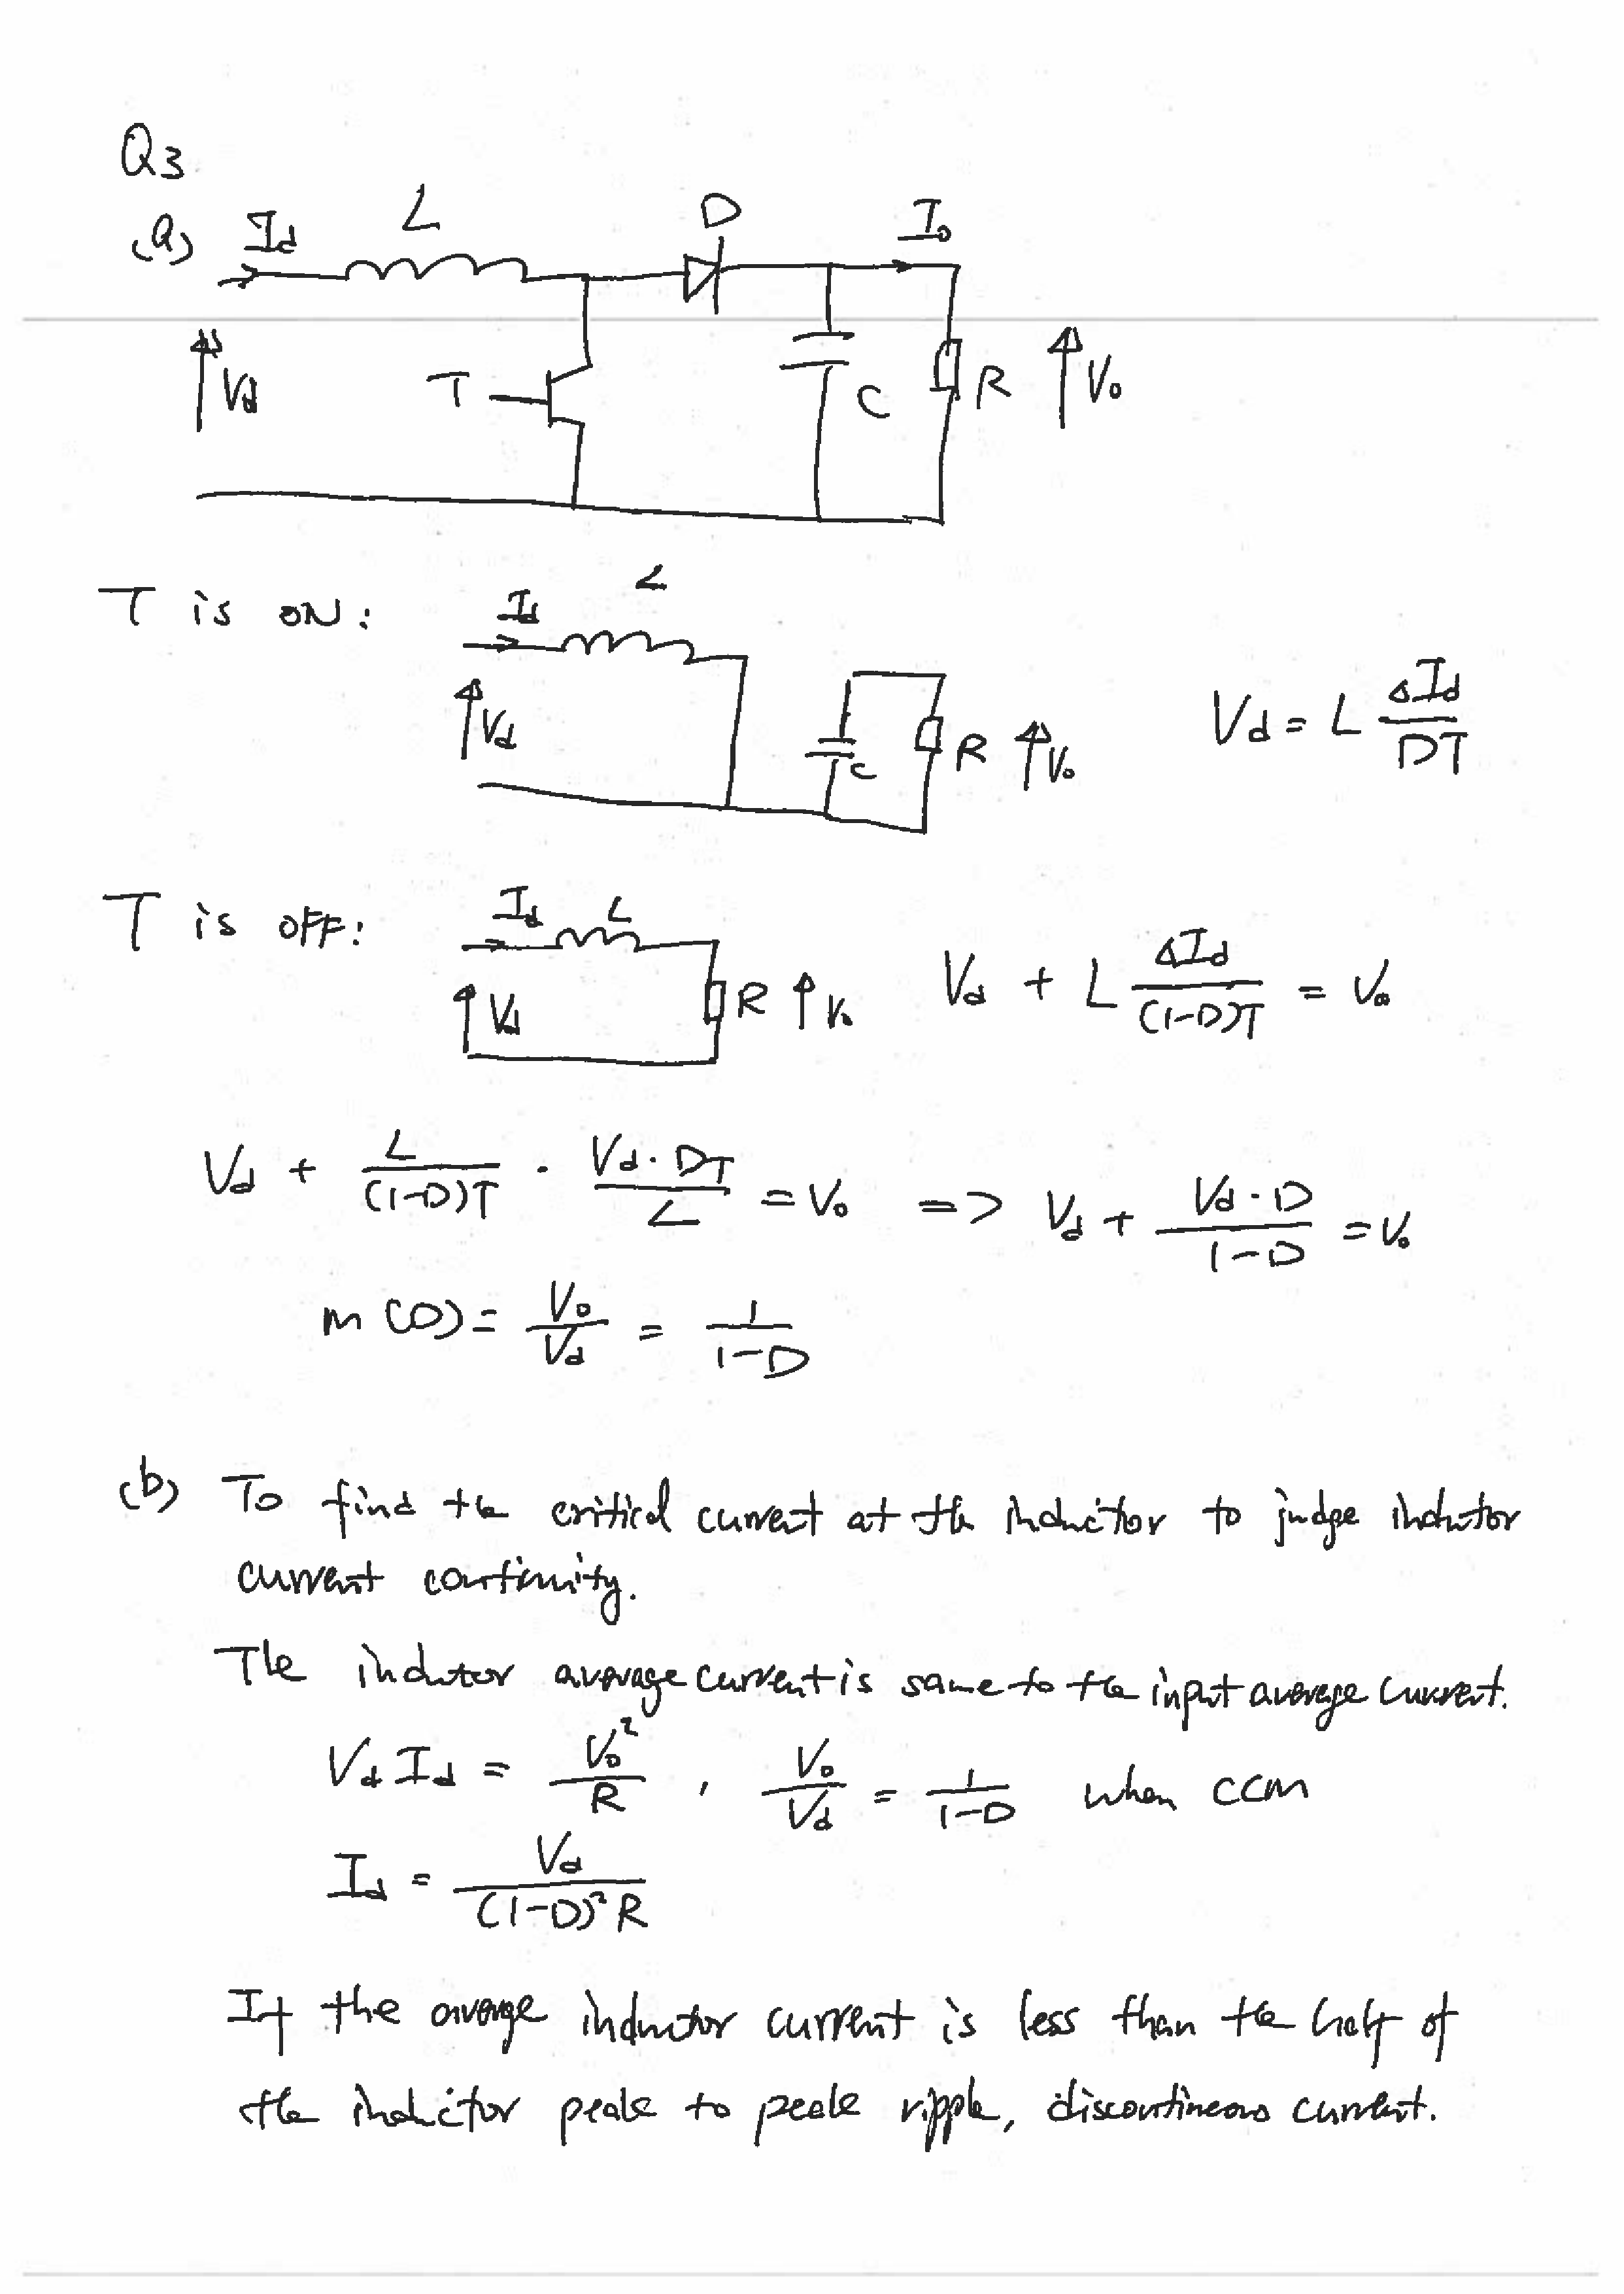 Q3
(a) Id L D Io
Vd T C R Vo
T is ON: Id L
Vd C R Vo Vd = L ΔId / DT
T is OFF: Id L
Vd R Vo Vd + L ΔId / (1-D)T = Vo
Vd + L / (1-D)T · Vd · DT / L = Vo => Vd + Vd · D / 1-D = Vo
m(D) = Vo / Vd = 1 / 1-D
(b) To find the critical current at the inductor to judge inductor
current continuity.
The inductor average current is same to the input average current.
Vd Id = Vo² / R , Vo / Vd = 1 / 1-D when CCM
Id = Vd / (1-D)² R
If the average inductor current is less than the half of
the inductor peak to peak ripple, discontineous current.